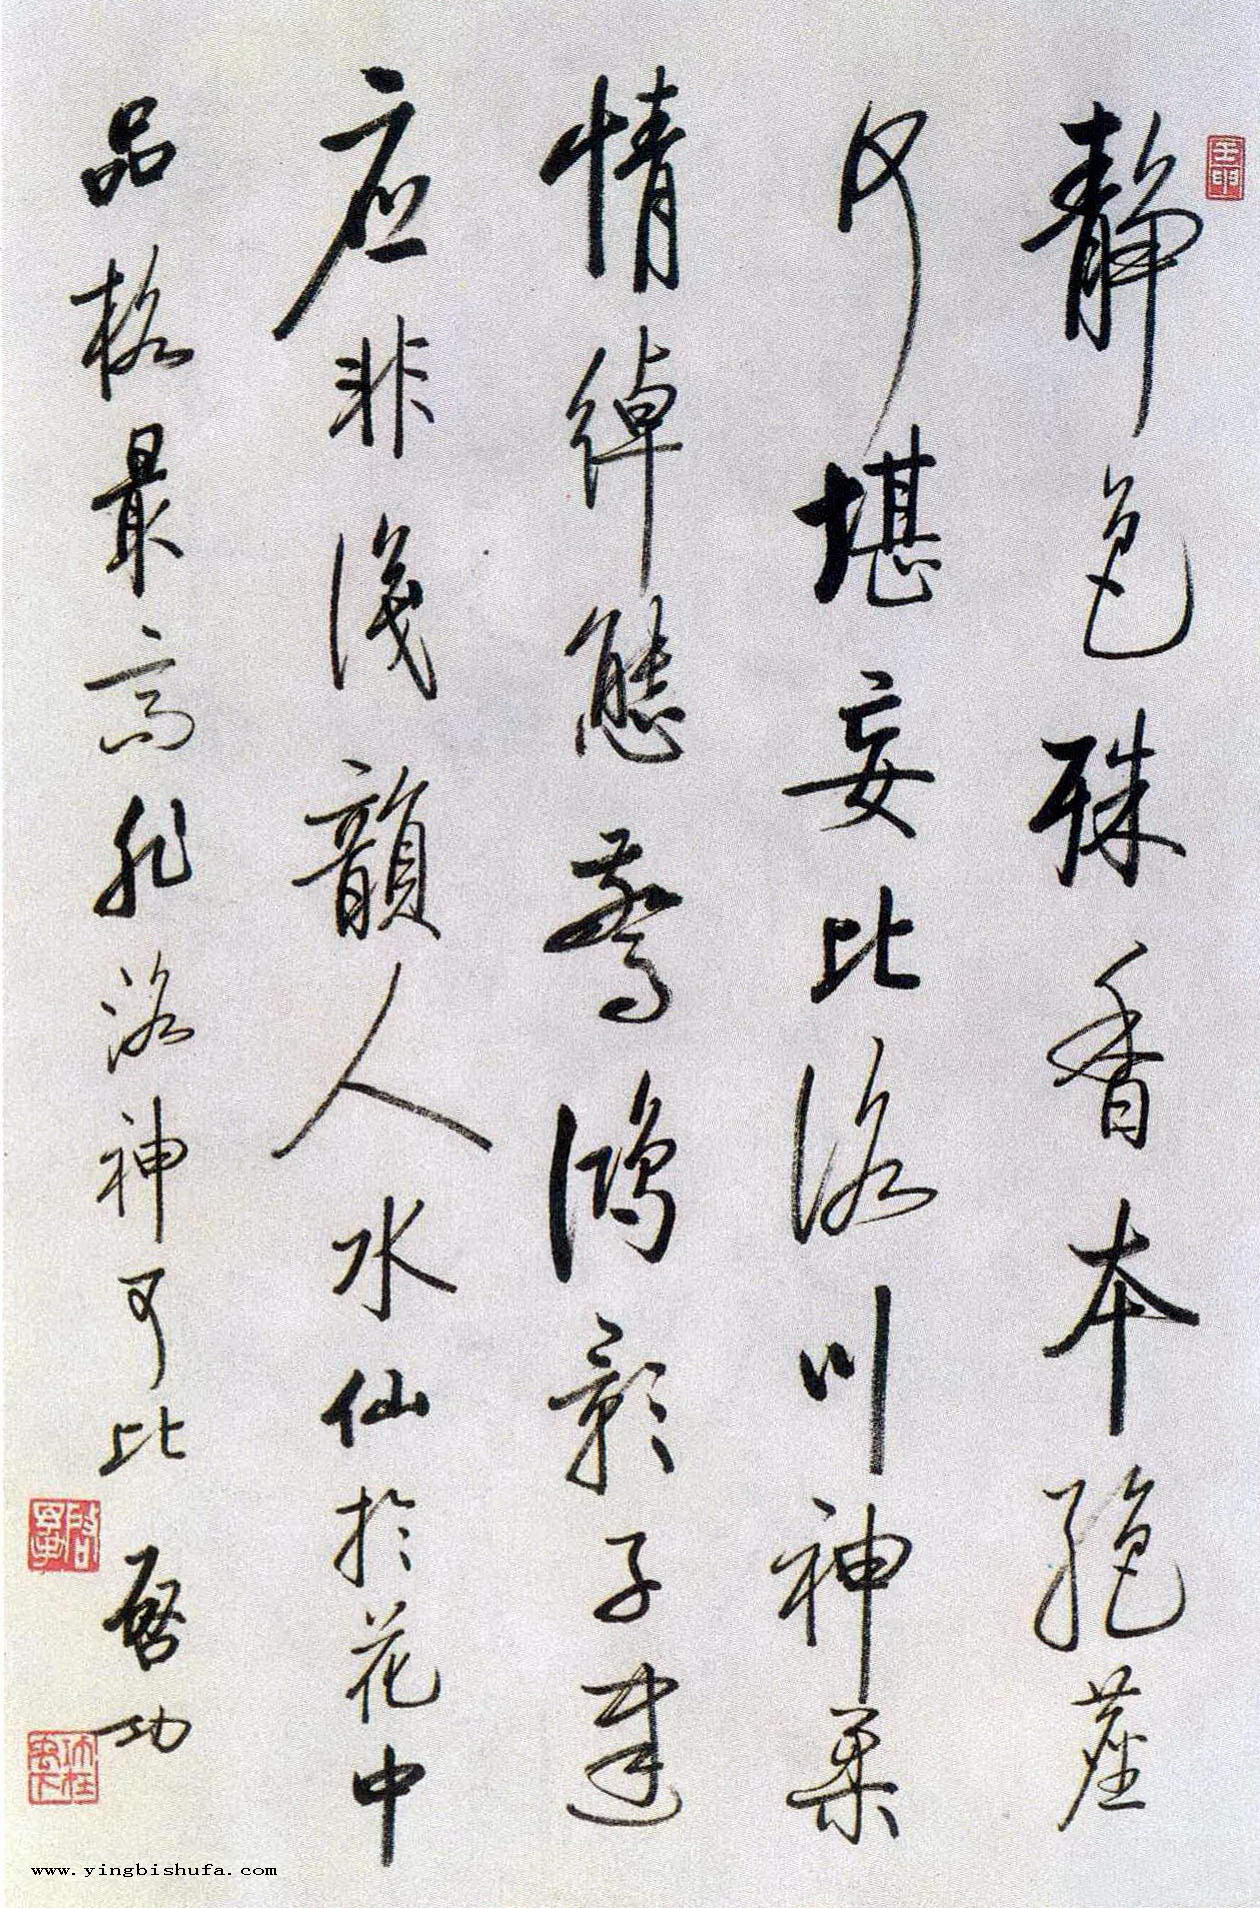 静色殊香本絕塵
何堪妄比洛川神柔
情綽態驚鴻影子建
应非淺韻人水仙於花中
品格最高非洛神可比
啓功
www.yingbishufa.com